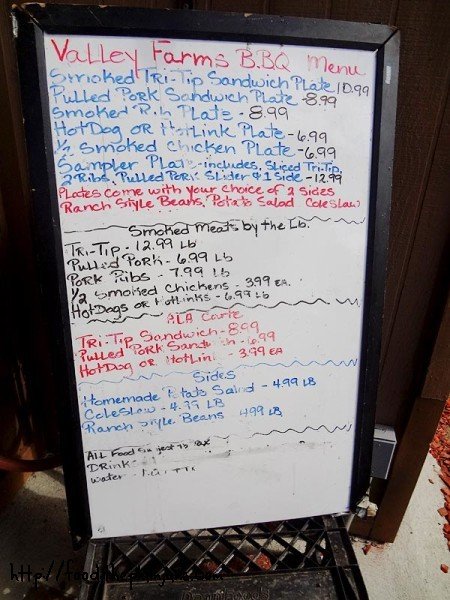 Valley Farms B.B.Q Menu
Smoked Tri-Tip Sandwich Plate 10.99
Pulled Pork Sandwich Plate - 8.99
Smoked Rib Plate - 8.99
HotDog OR HotLink Plate - 6.99
1/2 Smoked Chicken Plate - 6.99
Sampler Plate - includes, Sliced Tri-Tip,
2 Ribs, Pulled Pork Slider & 1 Side - 12.99
Plates come with your choice of 2 sides
Ranch Style Beans, Potato Salad Coleslaw
Smoked Meats by the Lb.
Tri-Tip - 12.99 lb
Pulled Pork - 6.99 lb
Pork Ribs - 7.99 lb
1/2 Smoked Chickens - 3.99 EA.
HotDogs or HotLinks - 6.99 Lb
ALA Carte
Tri-Tip Sandwich - 8.99
Pulled Pork Sandwich - 6.99
HotDog or HotLink - 3.99 EA
Sides
Homemade Potato Salad - 4.99 LB
Coleslaw - 4.99 LB
Ranch Style Beans 4.99 LB
ALL Food Subject to Tax
DRink
water -